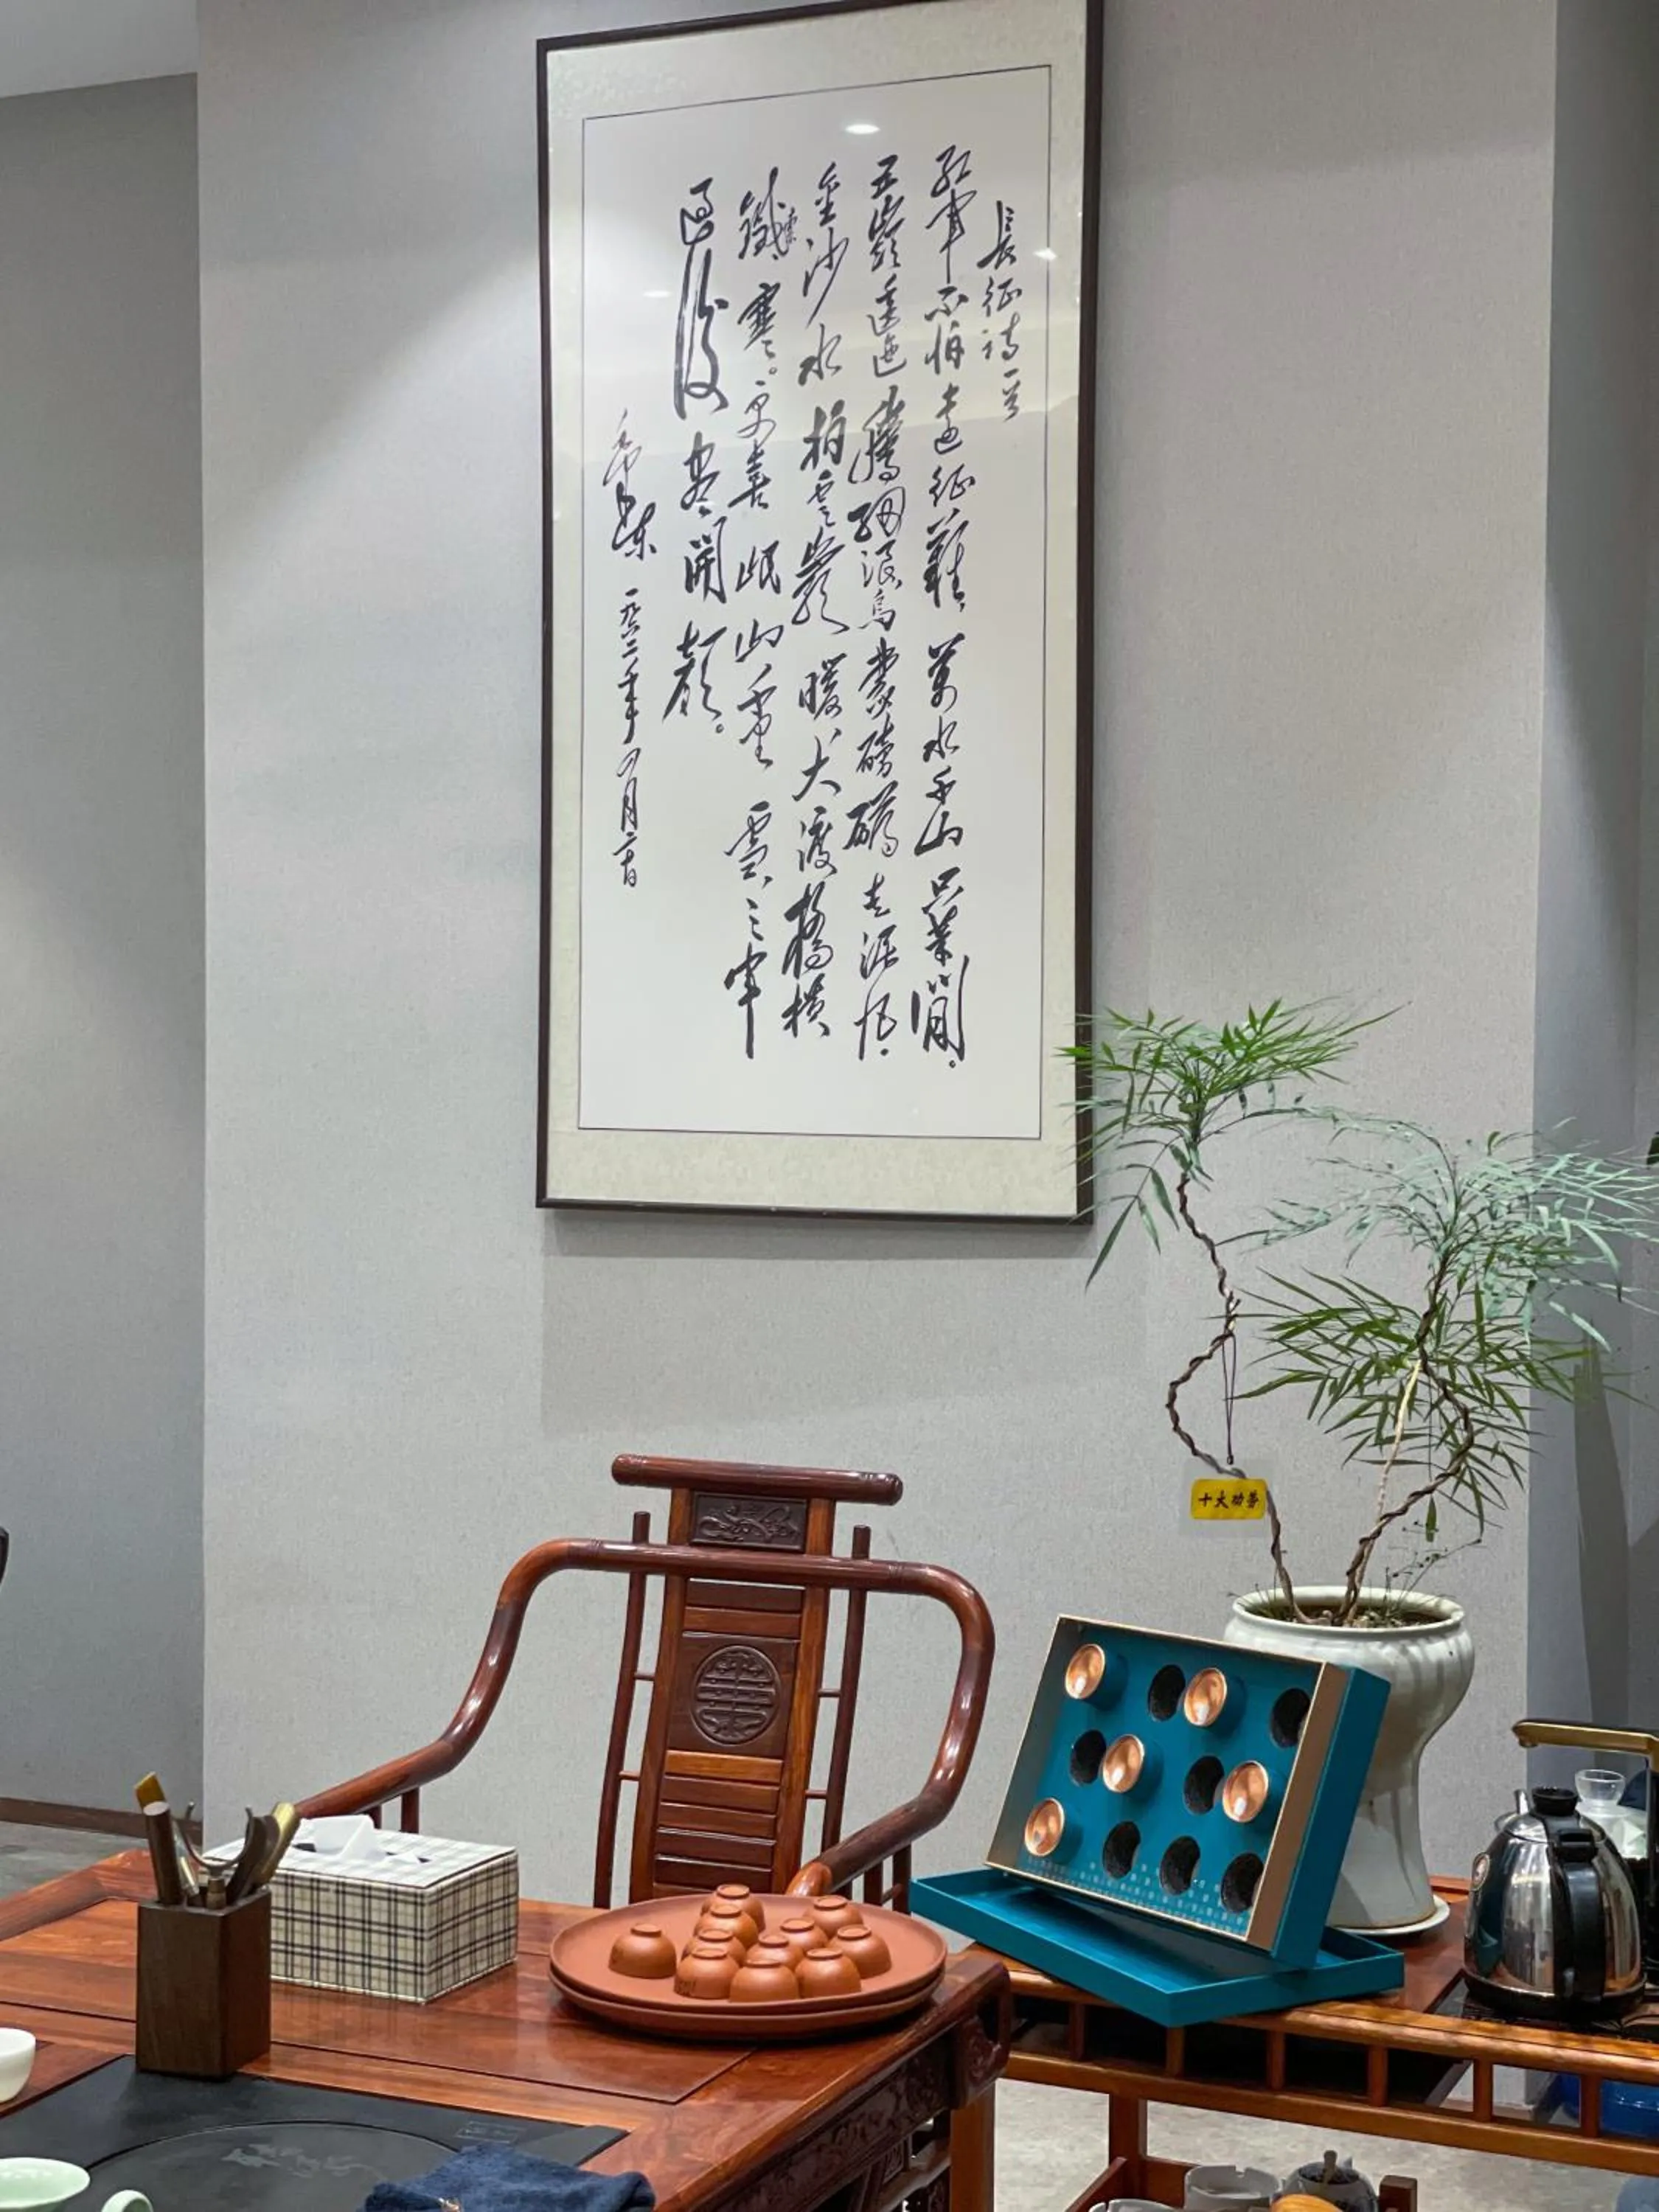 長征詩一首
紅軍不怕遠征難，萬水千山只等閒。
五嶺逶迤騰細浪烏蒙磅礴走泥丸.
金沙水拍雲崖暖大渡橋橫
鐵索寒。更喜岷山千里雪三軍
過後盡開顏。
毛澤東 一九六二年四月二十日
十大功劳